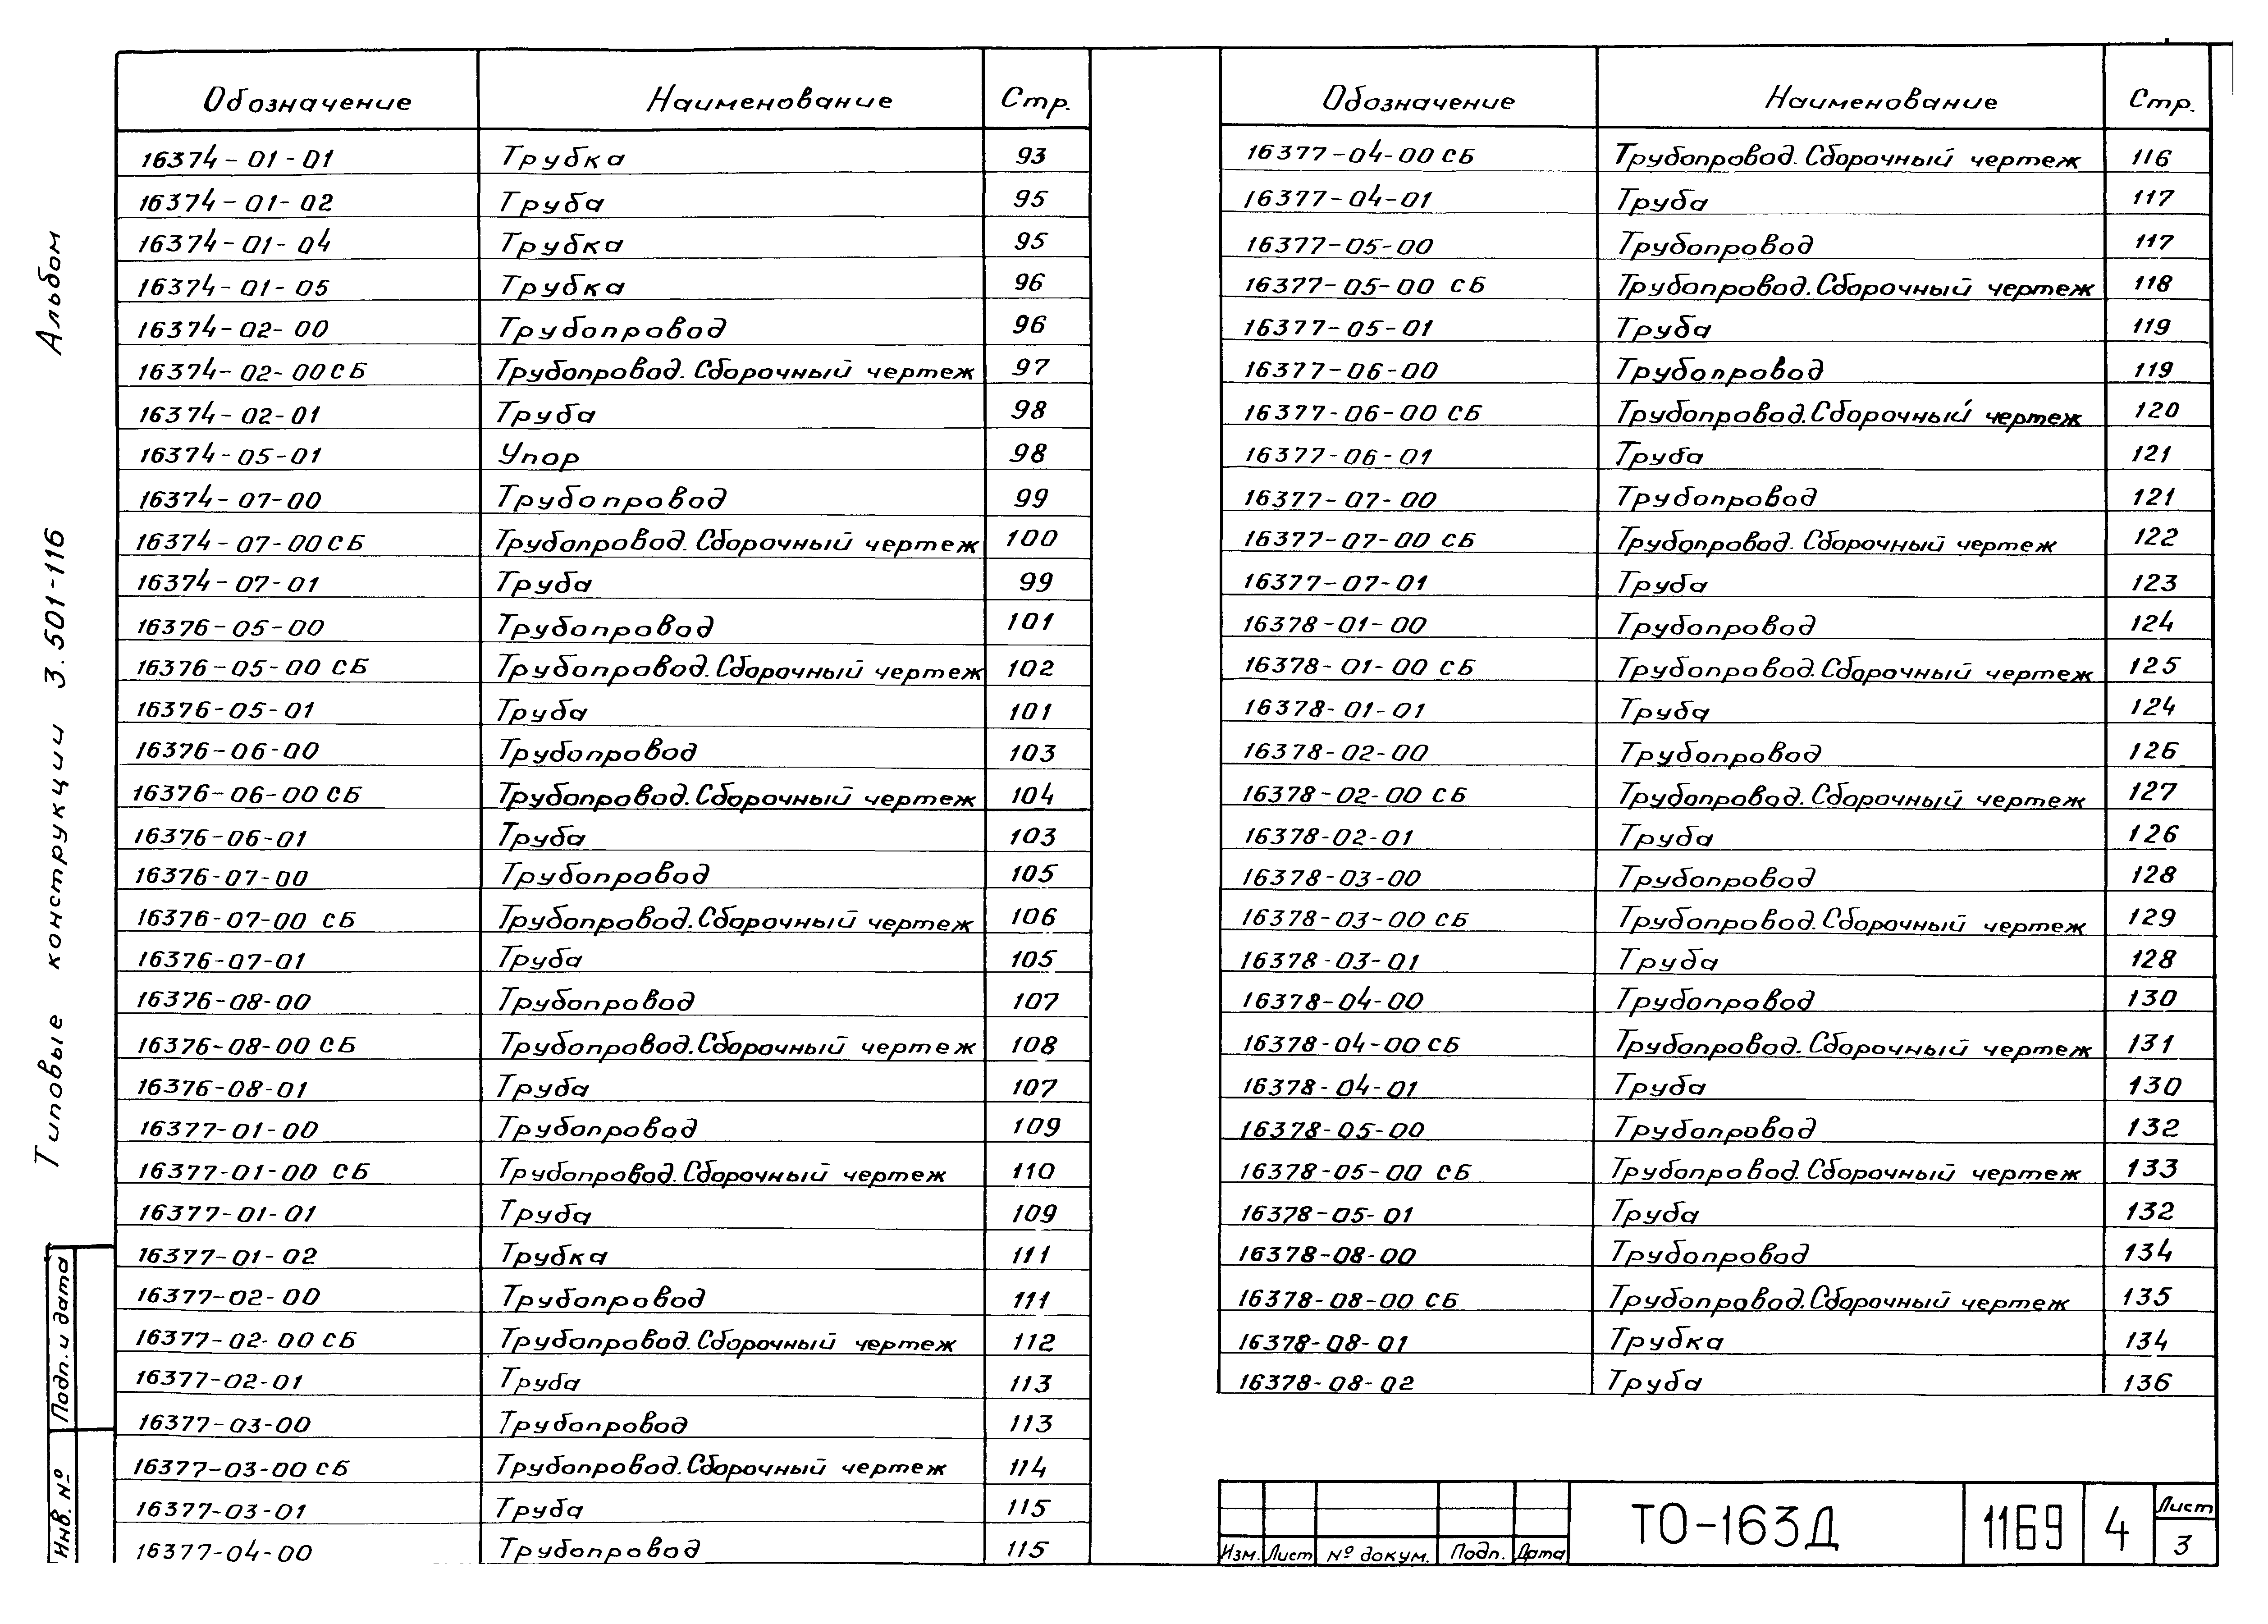 Альбом
Типовые конструкции 3.501-116
Подп. и дата
Инв. №
Обозначение Наименование Стр.
16374-01-01 Трубка 93
16374-01-02 Труба 95
16374-01-04 Трубка 95
16374-01-05 Трубка 96
16374-02-00 Трубопровод 96
16374-02-00 СБ Трубопровод. Сборочный чертеж 97
16374-02-01 Труба 98
16374-05-01 Упор 98
16374-07-00 Трубопровод 99
16374-07-00 СБ Трубопровод. Сборочный чертеж 100
16374-07-01 Труба 99
16376-05-00 Трубопровод 101
16376-05-00 СБ Трубопровод. Сборочный чертеж 102
16376-05-01 Труба 101
16376-06-00 Трубопровод 103
16376-06-00 СБ Трубопровод. Сборочный чертеж 104
16376-06-01 Труба 103
16376-07-00 Трубопровод 105
16376-07-00 СБ Трубопровод. Сборочный чертеж 106
16376-07-01 Труба 105
16376-08-00 Трубопровод 107
16376-08-00 СБ Трубопровод. Сборочный чертеж 108
16376-08-01 Труба 107
16377-01-00 Трубопровод 109
16377-01-00 СБ Трубопровод. Сборочный чертеж 110
16377-01-01 Труба 109
16377-01-02 Трубка 111
16377-02-00 Трубопровод 111
16377-02-00 СБ Трубопровод. Сборочный чертеж 112
16377-02-01 Труба 113
16377-03-00 Трубопровод 113
16377-03-00 СБ Трубопровод. Сборочный чертеж 114
16377-03-01 Труба 115
16377-04-00 Трубопровод 115
Обозначение Наименование Стр.
16377-04-00 СБ Трубопровод. Сборочный чертеж 116
16377-04-01 Труба 117
16377-05-00 Трубопровод 117
16377-05-00 СБ Трубопровод. Сборочный чертеж 118
16377-05-01 Труба 119
16377-06-00 Трубопровод 119
16377-06-00 СБ Трубопровод. Сборочный чертеж 120
16377-06-01 Труба 121
16377-07-00 Трубопровод 121
16377-07-00 СБ Трубопровод. Сборочный чертеж 122
16377-07-01 Труба 123
16378-01-00 Трубопровод 124
16378-01-00 СБ Трубопровод. Сборочный чертеж 125
16378-01-01 Труба 124
16378-02-00 Трубопровод 126
16378-02-00 СБ Трубопровод. Сборочный чертеж 127
16378-02-01 Труба 126
16378-03-00 Трубопровод 128
16378-03-00 СБ Трубопровод. Сборочный чертеж 129
16378-03-01 Труба 128
16378-04-00 Трубопровод 130
16378-04-00 СБ Трубопровод. Сборочный чертеж 131
16378-04-01 Труба 130
16378-05-00 Трубопровод 132
16378-05-00 СБ Трубопровод. Сборочный чертеж 133
16378-05-01 Труба 132
16378-08-00 Трубопровод 134
16378-08-00 СБ Трубопровод. Сборочный чертеж 135
16378-08-01 Трубка 134
16378-08-02 Труба 136
Изм. Лист № докум. Подп. Дата
ТО-163Д 1169 4 Лист
3